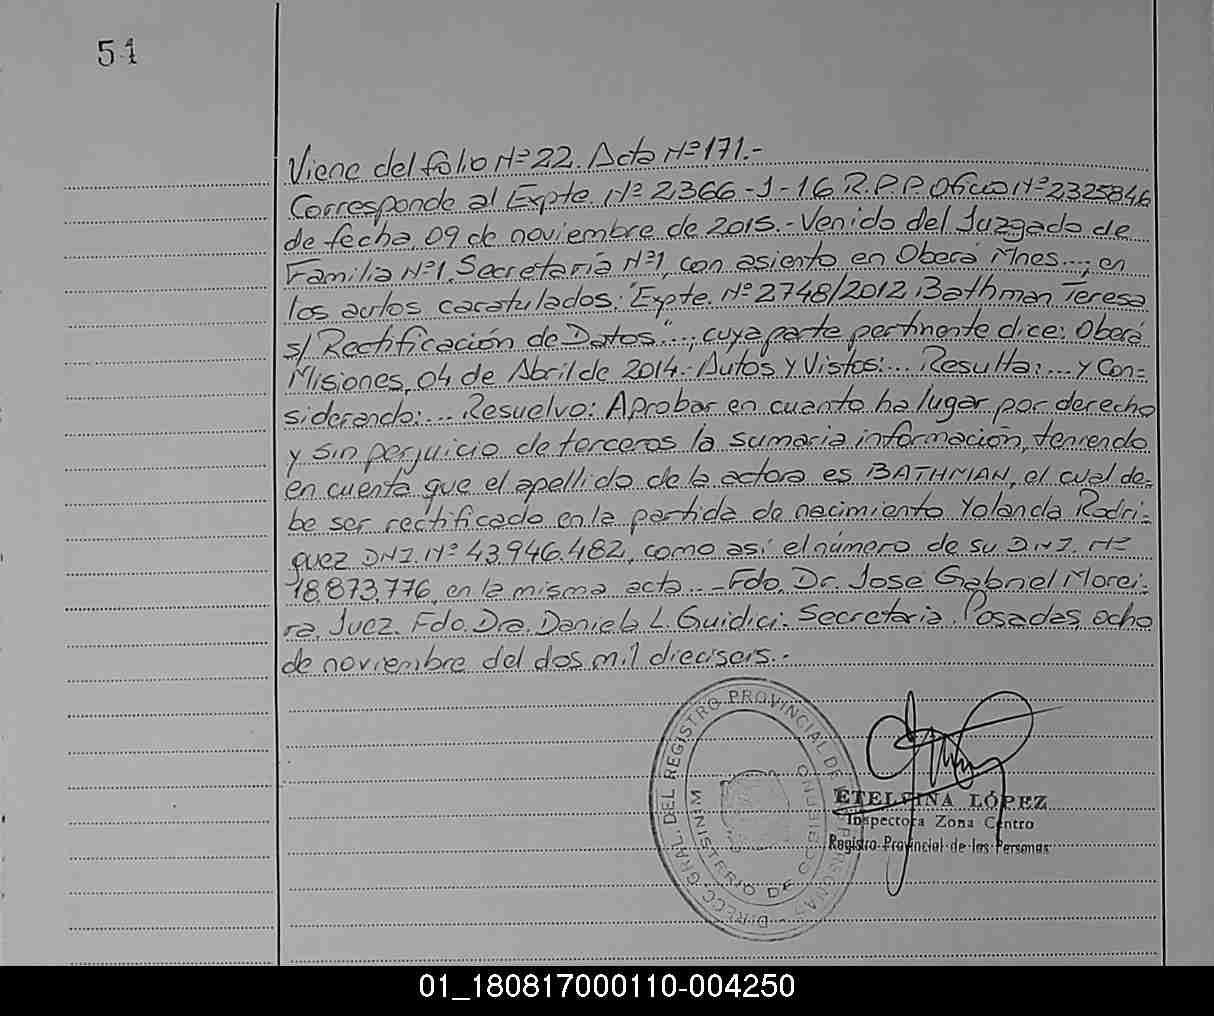 51
Viene del folio Nº 22. Acta Nº 171.-
Corresponde al Expte. Nº 2366-J-16 R.P.P. Oficio Nº 2325846
de fecha 09 de noviembre de 2015.- Venido del Juzgado de
Familia Nº1, Secretaría Nº1, con asiento en Oberá Mnes...; en
los autos caratulados: "Expte. Nº 2748/2012 Bathman Teresa
s/ Rectificación de Datos"...; cuya parte pertinente dice: Oberá
Misiones, 04 de Abril de 2014.- Autos y Vistos:... Resulta:... y Con=
siderando:... Resuelvo: Aprobar en cuanto ha lugar por derecho
y sin perjuicio de terceros la sumaria información, teniendo
en cuenta que el apellido de la actora es BATHMAN, el cual de-
be ser rectificado en la partida de nacimiento Yolanda Rodri-
guez DNI. Nº 43.946.482, como así el número de su DNI. Nº
18.873.776, en la misma acta...- Fdo. Dr. José Gabriel Morei-
ra. Juez. Fdo. Dra. Daniela L. Guidici. Secretaria. Posadas, ocho
de noviembre del dos mil dieciseis.-
DIRECC. GRAL. DEL REGISTRO PROVINCIAL DE PERSONAS
MINISTERIO DE GOBIERNO
ETELVINA LÓPEZ
Inspectora Zona Centro
Registro Provincial de las Personas
01_180817000110-004250